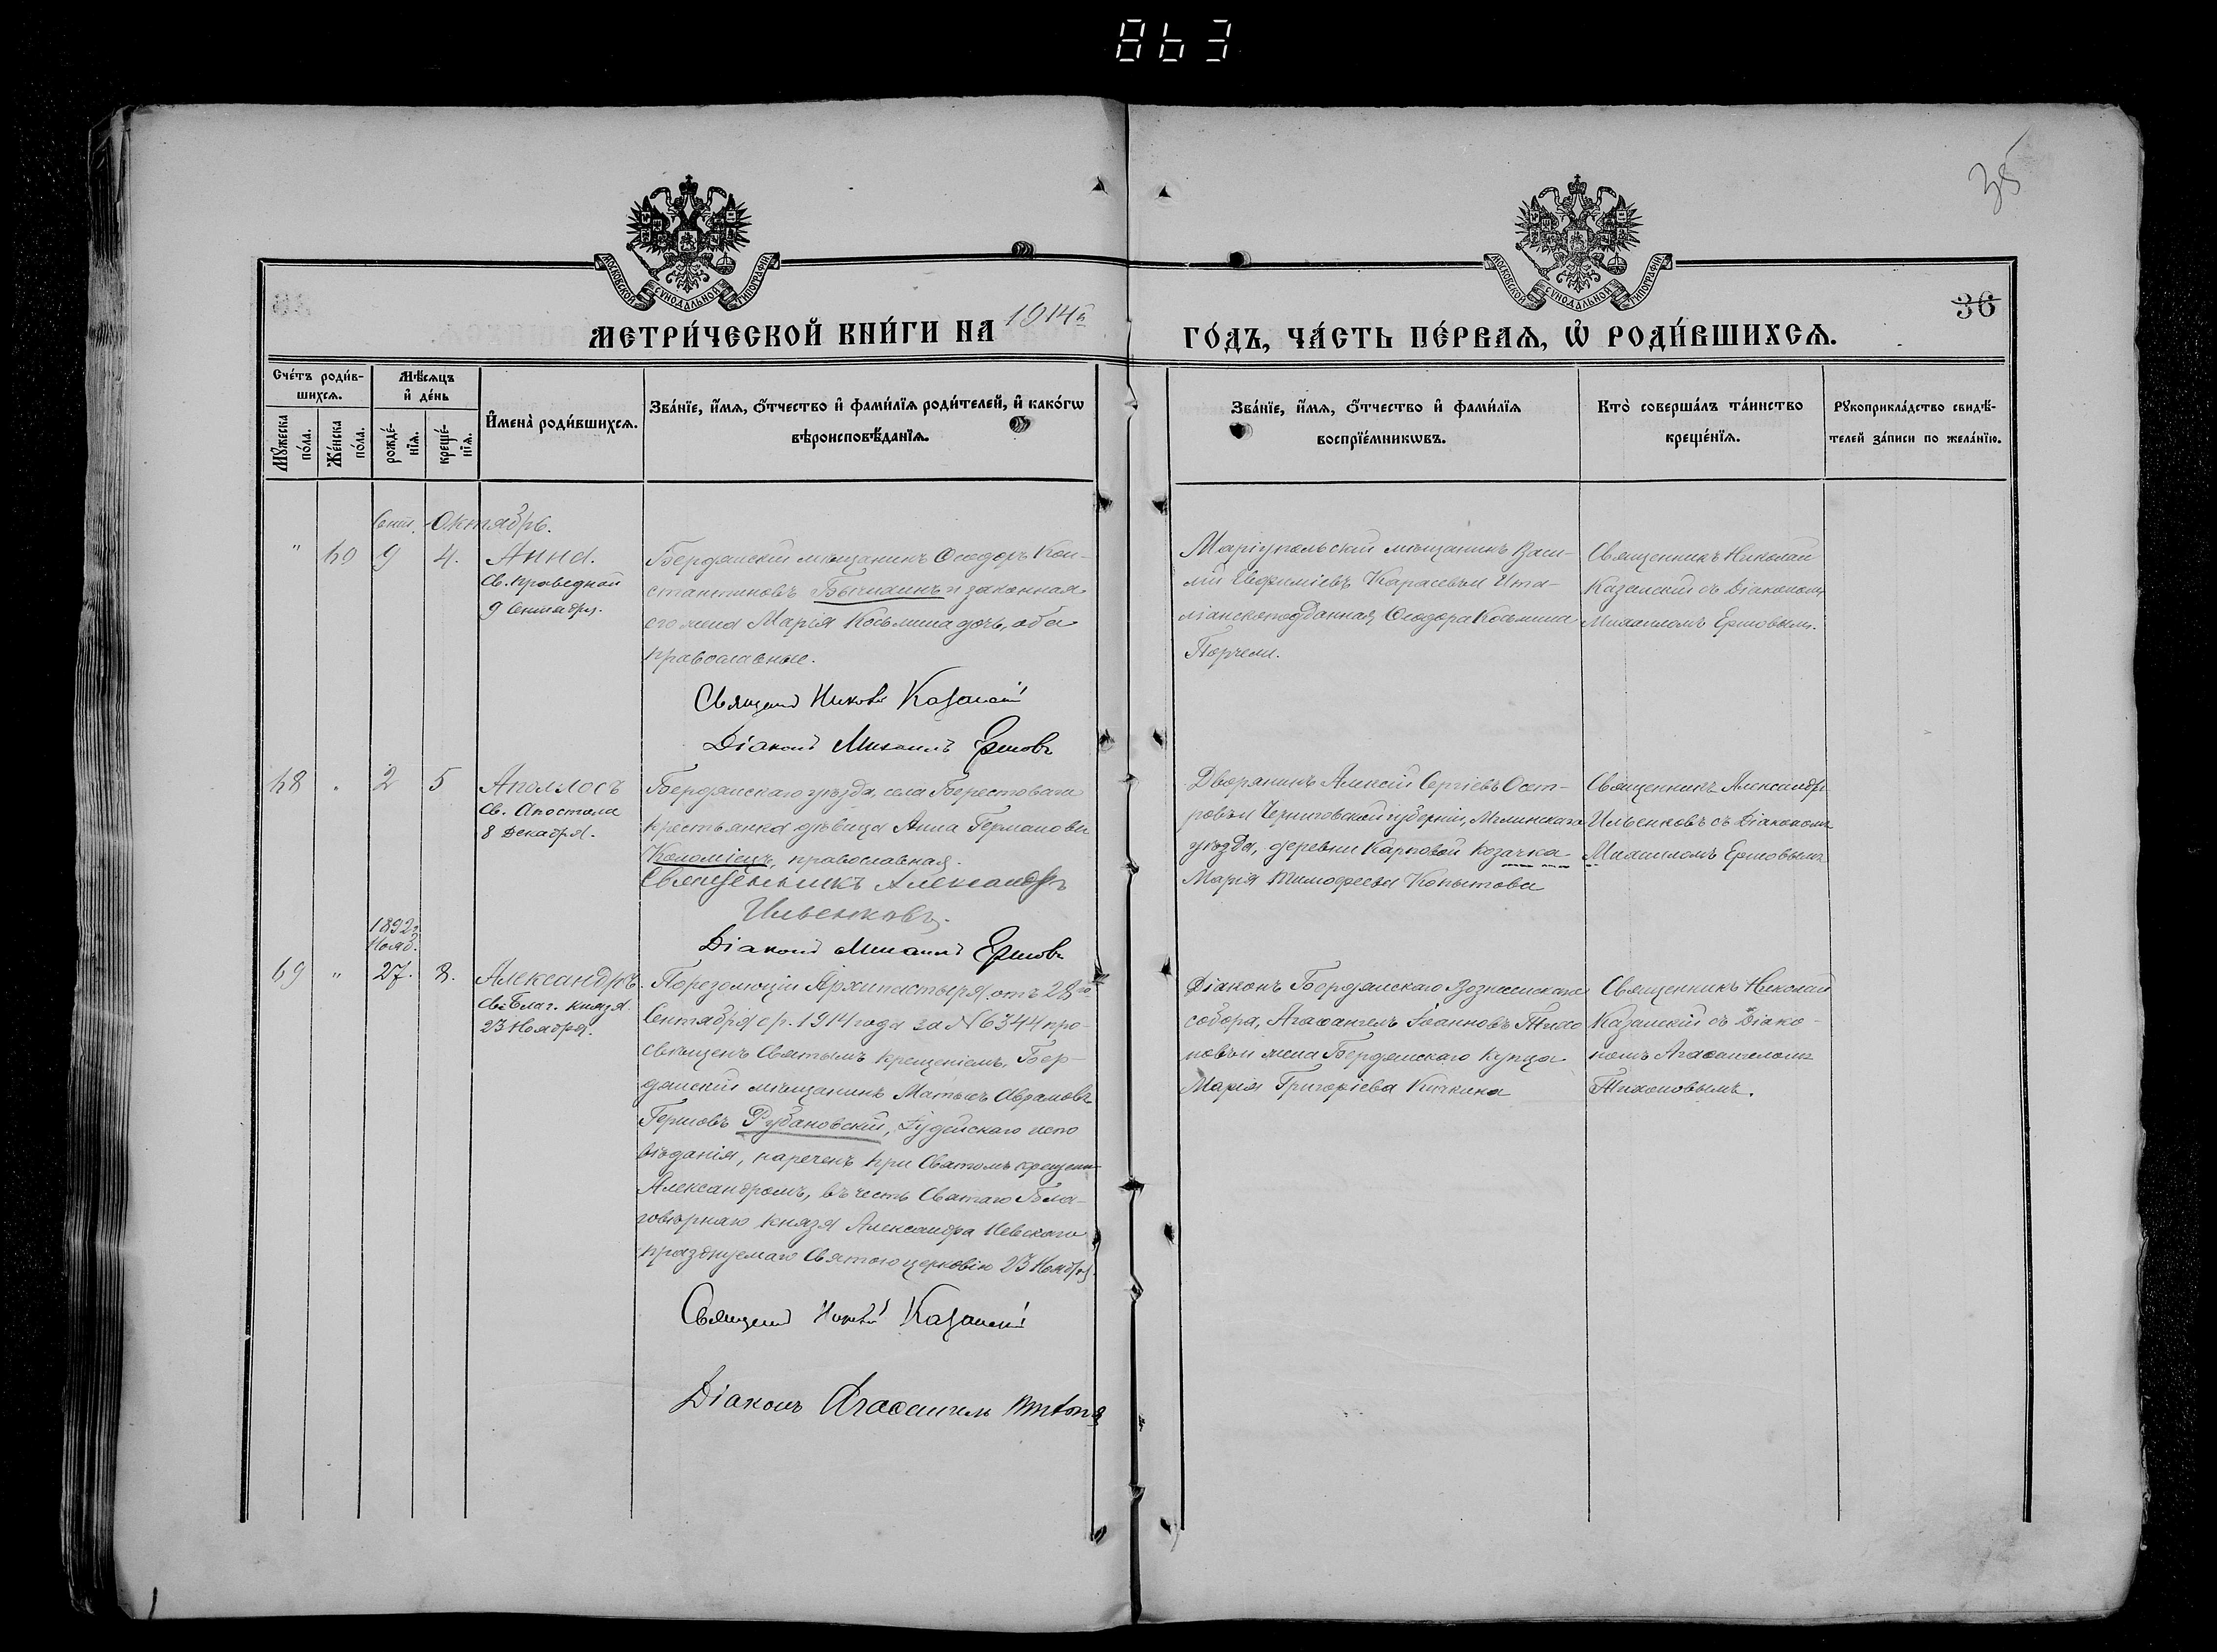 863
35
МОСКОВСКОЙ СѴНОДАЛЬНОЙ ТИПОГРАФІИ
МОСКОВСКОЙ СѴНОДАЛЬНОЙ ТИПОГРАФІИ
36
МЕТРИ́ЧЕСКОЙ КНИ́ГИ НА 1914й
ГО́ДЪ, ЧА́СТЬ ПЕ́РВАѦ, Ѽ РОДИ́ВШИХСѦ.
Сче́тъ роди́в-
шихсѧ.
Мꙋжеска по́ла.
Же́нска по́ла.
Мѣ́сѧцъ и҆ де́нь
рожде́-нїѧ.
креще́-нїѧ.
И҆мена̀ роди́вшихсѧ.
Зва́нїе, и҆́мѧ, ѻ҆́тчество и҆ фами́лїѧ роди́телей, и҆ како́гѡ
вѣроисповѣ́данїѧ.
Зва́нїе, и҆́мѧ, ѻ҆́тчество и҆ фами́лїѧ
воспрїе́мникѡвъ.
Кто̀ соверша́лъ та́инство
креще́нїѧ.
Рꙋкоприкла́дство свидѣ́-
телей за́писи по жела́нїю.
Сент. Октябрь.
" 60 9 4. Анна.
Св. праведной
9 Сентября.
Бердянскій мѣщанинъ Ѳеодоръ Кон-
стантиновъ и законная
его жена Марія Косьмина дочь, оба
православные.
Священникъ Николай Казанскій
Діаконъ Михаилъ Ершовъ
Маріупольскій мѣщанинъ Васи-
лій Евфиміевъ Карасевъ и Ита-
ліанскоподданная Ѳеодора Косьмина
Порчели.
Священникъ Николай
Казанскій съ Діакономъ
Михаиломъ Ершовымъ.
68 " 2 5 Аполлосъ
Св. Апостола
8 Декабря.
Бердянскаго уѣзда, села Берестоваго
крестьянка дѣвица Анна Германова
Коломіецъ, православная.
Священникъ Александръ
Ильенковъ.
Діаконъ Михаилъ Ершовъ
Дворянинъ Алексій Сергіевъ Ост-
ровъ и Черниговской губерніи, Мглинскаго
уѣзда, деревни Карповой козачка
Марія Тимофеева Копытова
Священникъ Александръ
Ильенковъ съ Діакономъ
Михаиломъ Ершовымъ
1892 г.
Нояб.
69 " 27. 8. Александръ.
Св. Благ. князя
23 Ноября.
По резолюціи Архипастыря отъ 28го
Сентября с/г. 1914 года за № 6344 про-
свѣщенъ Святымъ крещеніемъ, Бер-
дянскій мѣщанинъ Матысъ Абрамовъ
Гершовъ Рубановскій, Іудейскаго испо
вѣданія, нареченъ при Святомъ крещеніи
Александромъ, въ честь Святаго Бла-
говѣрнаго князя Александра Невскаго
празднуемаго Святою церковію 23 Ноября.
Священникъ Николай Казанскій
Діаконъ Агаѳангелъ Тихонов
Діаконъ Бердянскаго Вознесенскаго
собора, Агаѳангелъ Іоанновъ Тихо
новъ и жена Бердянскаго купца
Марія Григоріева Кичкина
Священникъ Николай
Казанскій съ Діако-
номъ Агаѳангеломъ
Тихоновымъ.